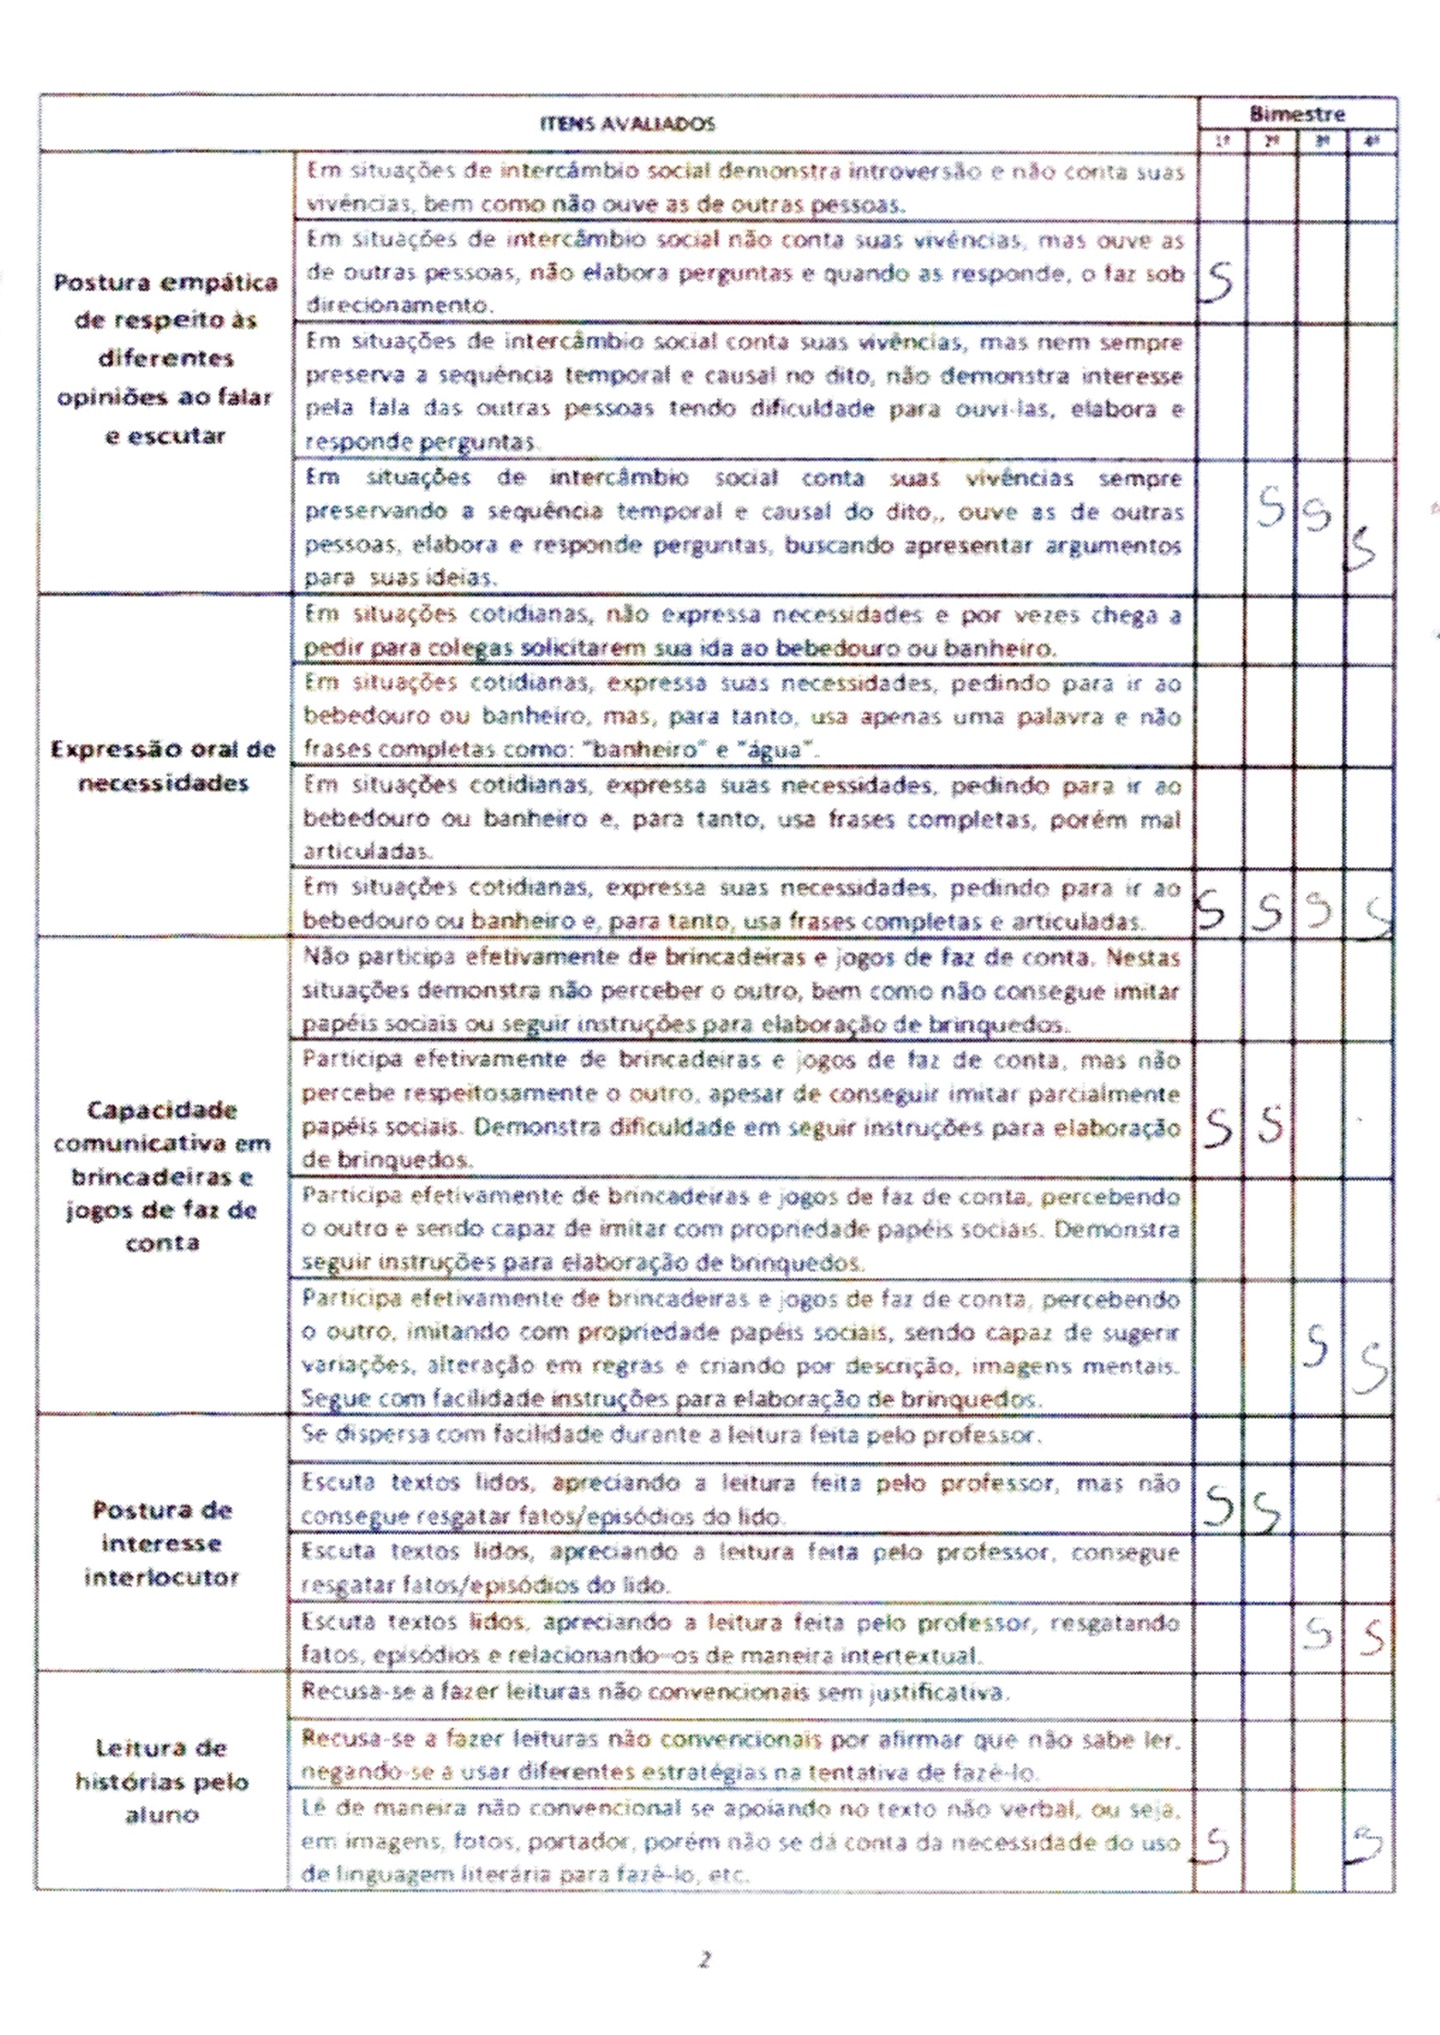 ITENS AVALIADOS
Bimestre
1º 2º 3º 4º
Postura empática
de respeito às
diferentes
opiniões ao falar
e escutar
Em situações de intercâmbio social demonstra introversão e não conta suas
vivências, bem como não ouve as de outras pessoas.
Em situações de intercâmbio social não conta suas vivências, mas ouve as
de outras pessoas, não elabora perguntas e quando as responde, o faz sob
direcionamento.
S
Em situações de intercâmbio social conta suas vivências, mas nem sempre
preserva a sequência temporal e causal no dito, não demonstra interesse
pela fala das outras pessoas tendo dificuldade para ouvi-las, elabora e
responde perguntas.
Em situações de intercâmbio social conta suas vivências sempre
preservando a sequência temporal e causal do dito,, ouve as de outras
pessoas, elabora e responde perguntas, buscando apresentar argumentos
para suas ideias.
S S S
Expressão oral de
necessidades
Em situações cotidianas, não expressa necessidades e por vezes chega a
pedir para colegas solicitarem sua ida ao bebedouro ou banheiro.
Em situações cotidianas, expressa suas necessidades, pedindo para ir ao
bebedouro ou banheiro, mas, para tanto, usa apenas uma palavra e não
frases completas como: "banheiro" e "água".
Em situações cotidianas, expressa suas necessidades, pedindo para ir ao
bebedouro ou banheiro e, para tanto, usa frases completas, porém mal
articuladas.
Em situações cotidianas, expressa suas necessidades, pedindo para ir ao
bebedouro ou banheiro e, para tanto, usa frases completas e articuladas.
S S S S
Capacidade
comunicativa em
brincadeiras e
jogos de faz de
conta
Não participa efetivamente de brincadeiras e jogos de faz de conta. Nestas
situações demonstra não perceber o outro, bem como não consegue imitar
papéis sociais ou seguir instruções para elaboração de brinquedos.
Participa efetivamente de brincadeiras e jogos de faz de conta, mas não
percebe respeitosamente o outro, apesar de conseguir imitar parcialmente
papéis sociais. Demonstra dificuldade em seguir instruções para elaboração
de brinquedos.
S S
Participa efetivamente de brincadeiras e jogos de faz de conta, percebendo
o outro e sendo capaz de imitar com propriedade papéis sociais. Demonstra
seguir instruções para elaboração de brinquedos.
Participa efetivamente de brincadeiras e jogos de faz de conta, percebendo
o outro, imitando com propriedade papéis sociais, sendo capaz de sugerir
variações, alteração em regras e criando por descrição, imagens mentais.
Segue com facilidade instruções para elaboração de brinquedos.
S S
Postura de
interesse
interlocutor
Se dispersa com facilidade durante a leitura feita pelo professor.
Escuta textos lidos, apreciando a leitura feita pelo professor, mas não
consegue resgatar fatos/episódios do lido.
S S
Escuta textos lidos, apreciando a leitura feita pelo professor, consegue
resgatar fatos/episódios do lido.
Escuta textos lidos, apreciando a leitura feita pelo professor, resgatando
fatos, episódios e relacionando-os de maneira intertextual.
S S
Leitura de
histórias pelo
aluno
Recusa-se a fazer leituras não convencionais sem justificativa.
Recusa-se a fazer leituras não convencionais por afirmar que não sabe ler,
negando-se a usar diferentes estratégias na tentativa de fazê-lo.
Lê de maneira não convencional se apoiando no texto não verbal, ou seja,
em imagens, fotos, portador, porém não se dá conta da necessidade do uso
de linguagem literária para fazê-lo, etc.
S S
2